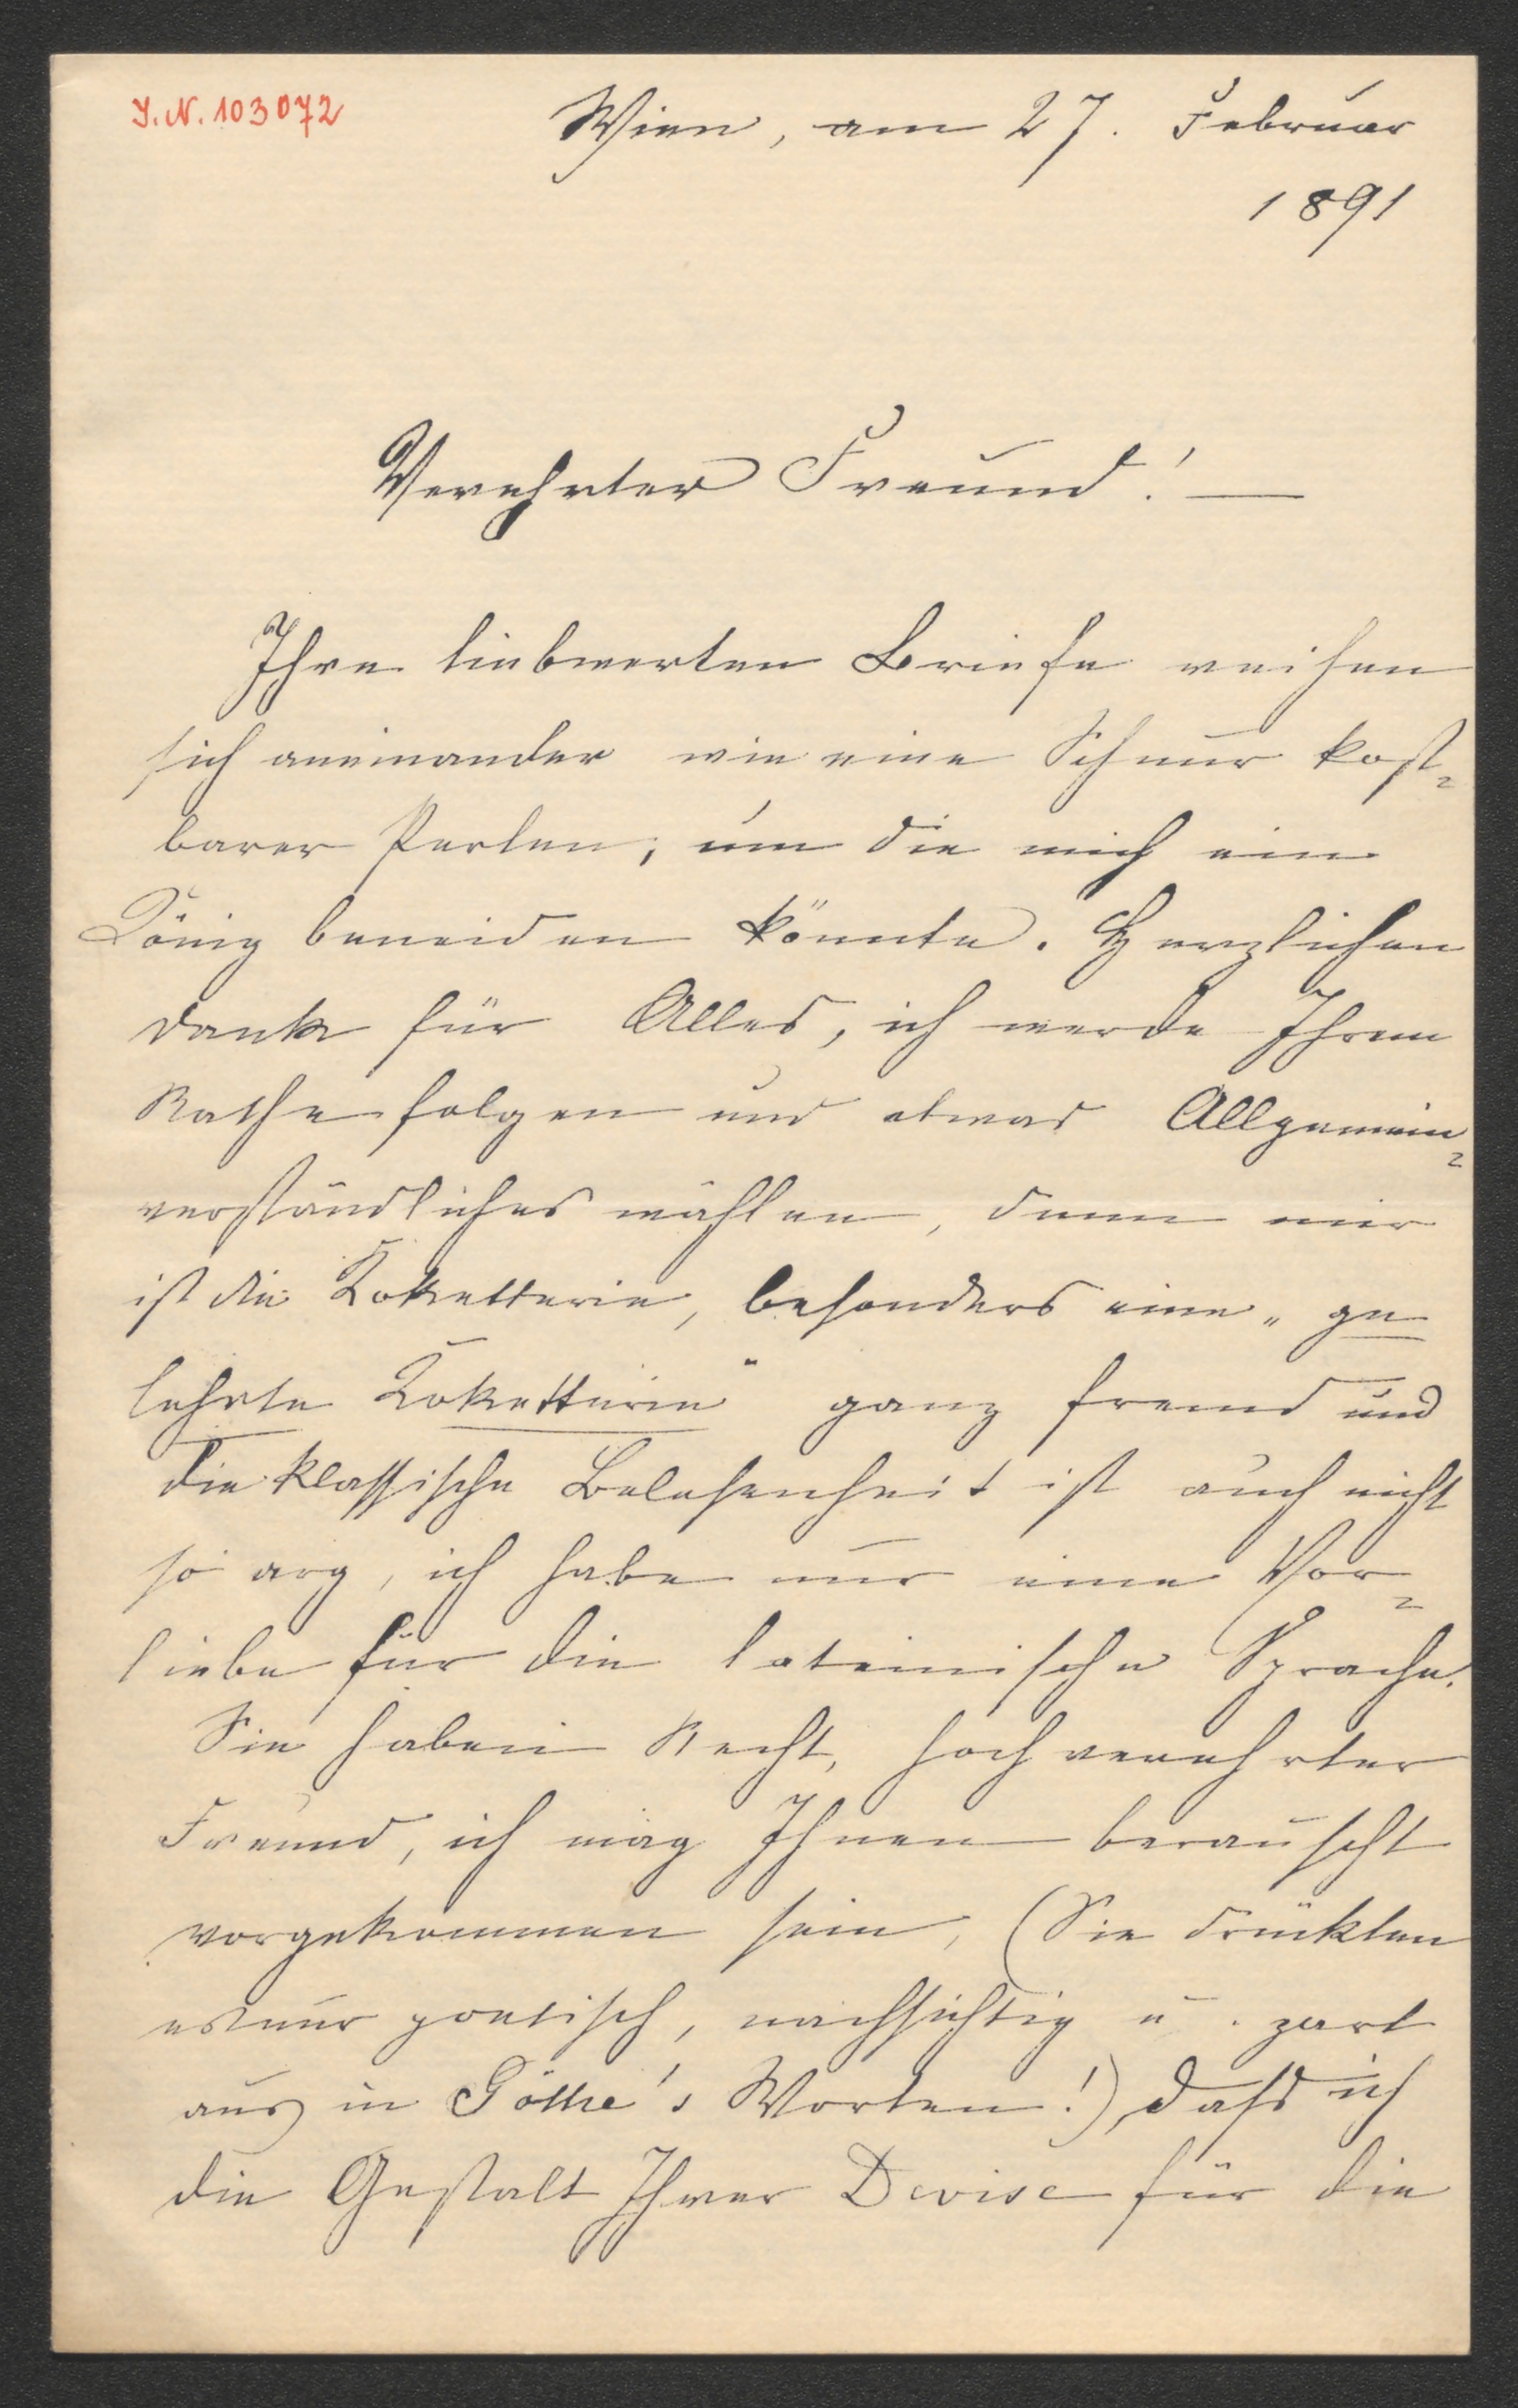 I. N. 103072
Wien, am 27. Februar
1891
Verehrter Freund! —
Ihre liebwerten Briefe reihen
sich aneinander wie eine Schnur kost-
barer Perlen, um die mich ein
König beneiden könnte. Herzlichen
Dank für Alles, ich werde Ihrem
Rathe folgen und etwas Allgemein-
verständliches wählen, denn mir
ist die Koketterie, besonders eine „ge
lehrte Koketterie“ ganz fremd und
die klassische Belesenheit ist auch nicht
so arg, ich habe nur eine Vor-
liebe für die lateinische Sprache.
Sie haben Recht, hochverehrter
Freund, ich mag Ihnen berauscht
vorgekommen sein, (Sie drückten
es nur poetisch, nachsichtig u. zart
aus in Göthe's Worten!) dass ich
die Gestalt Ihrer Devise für die